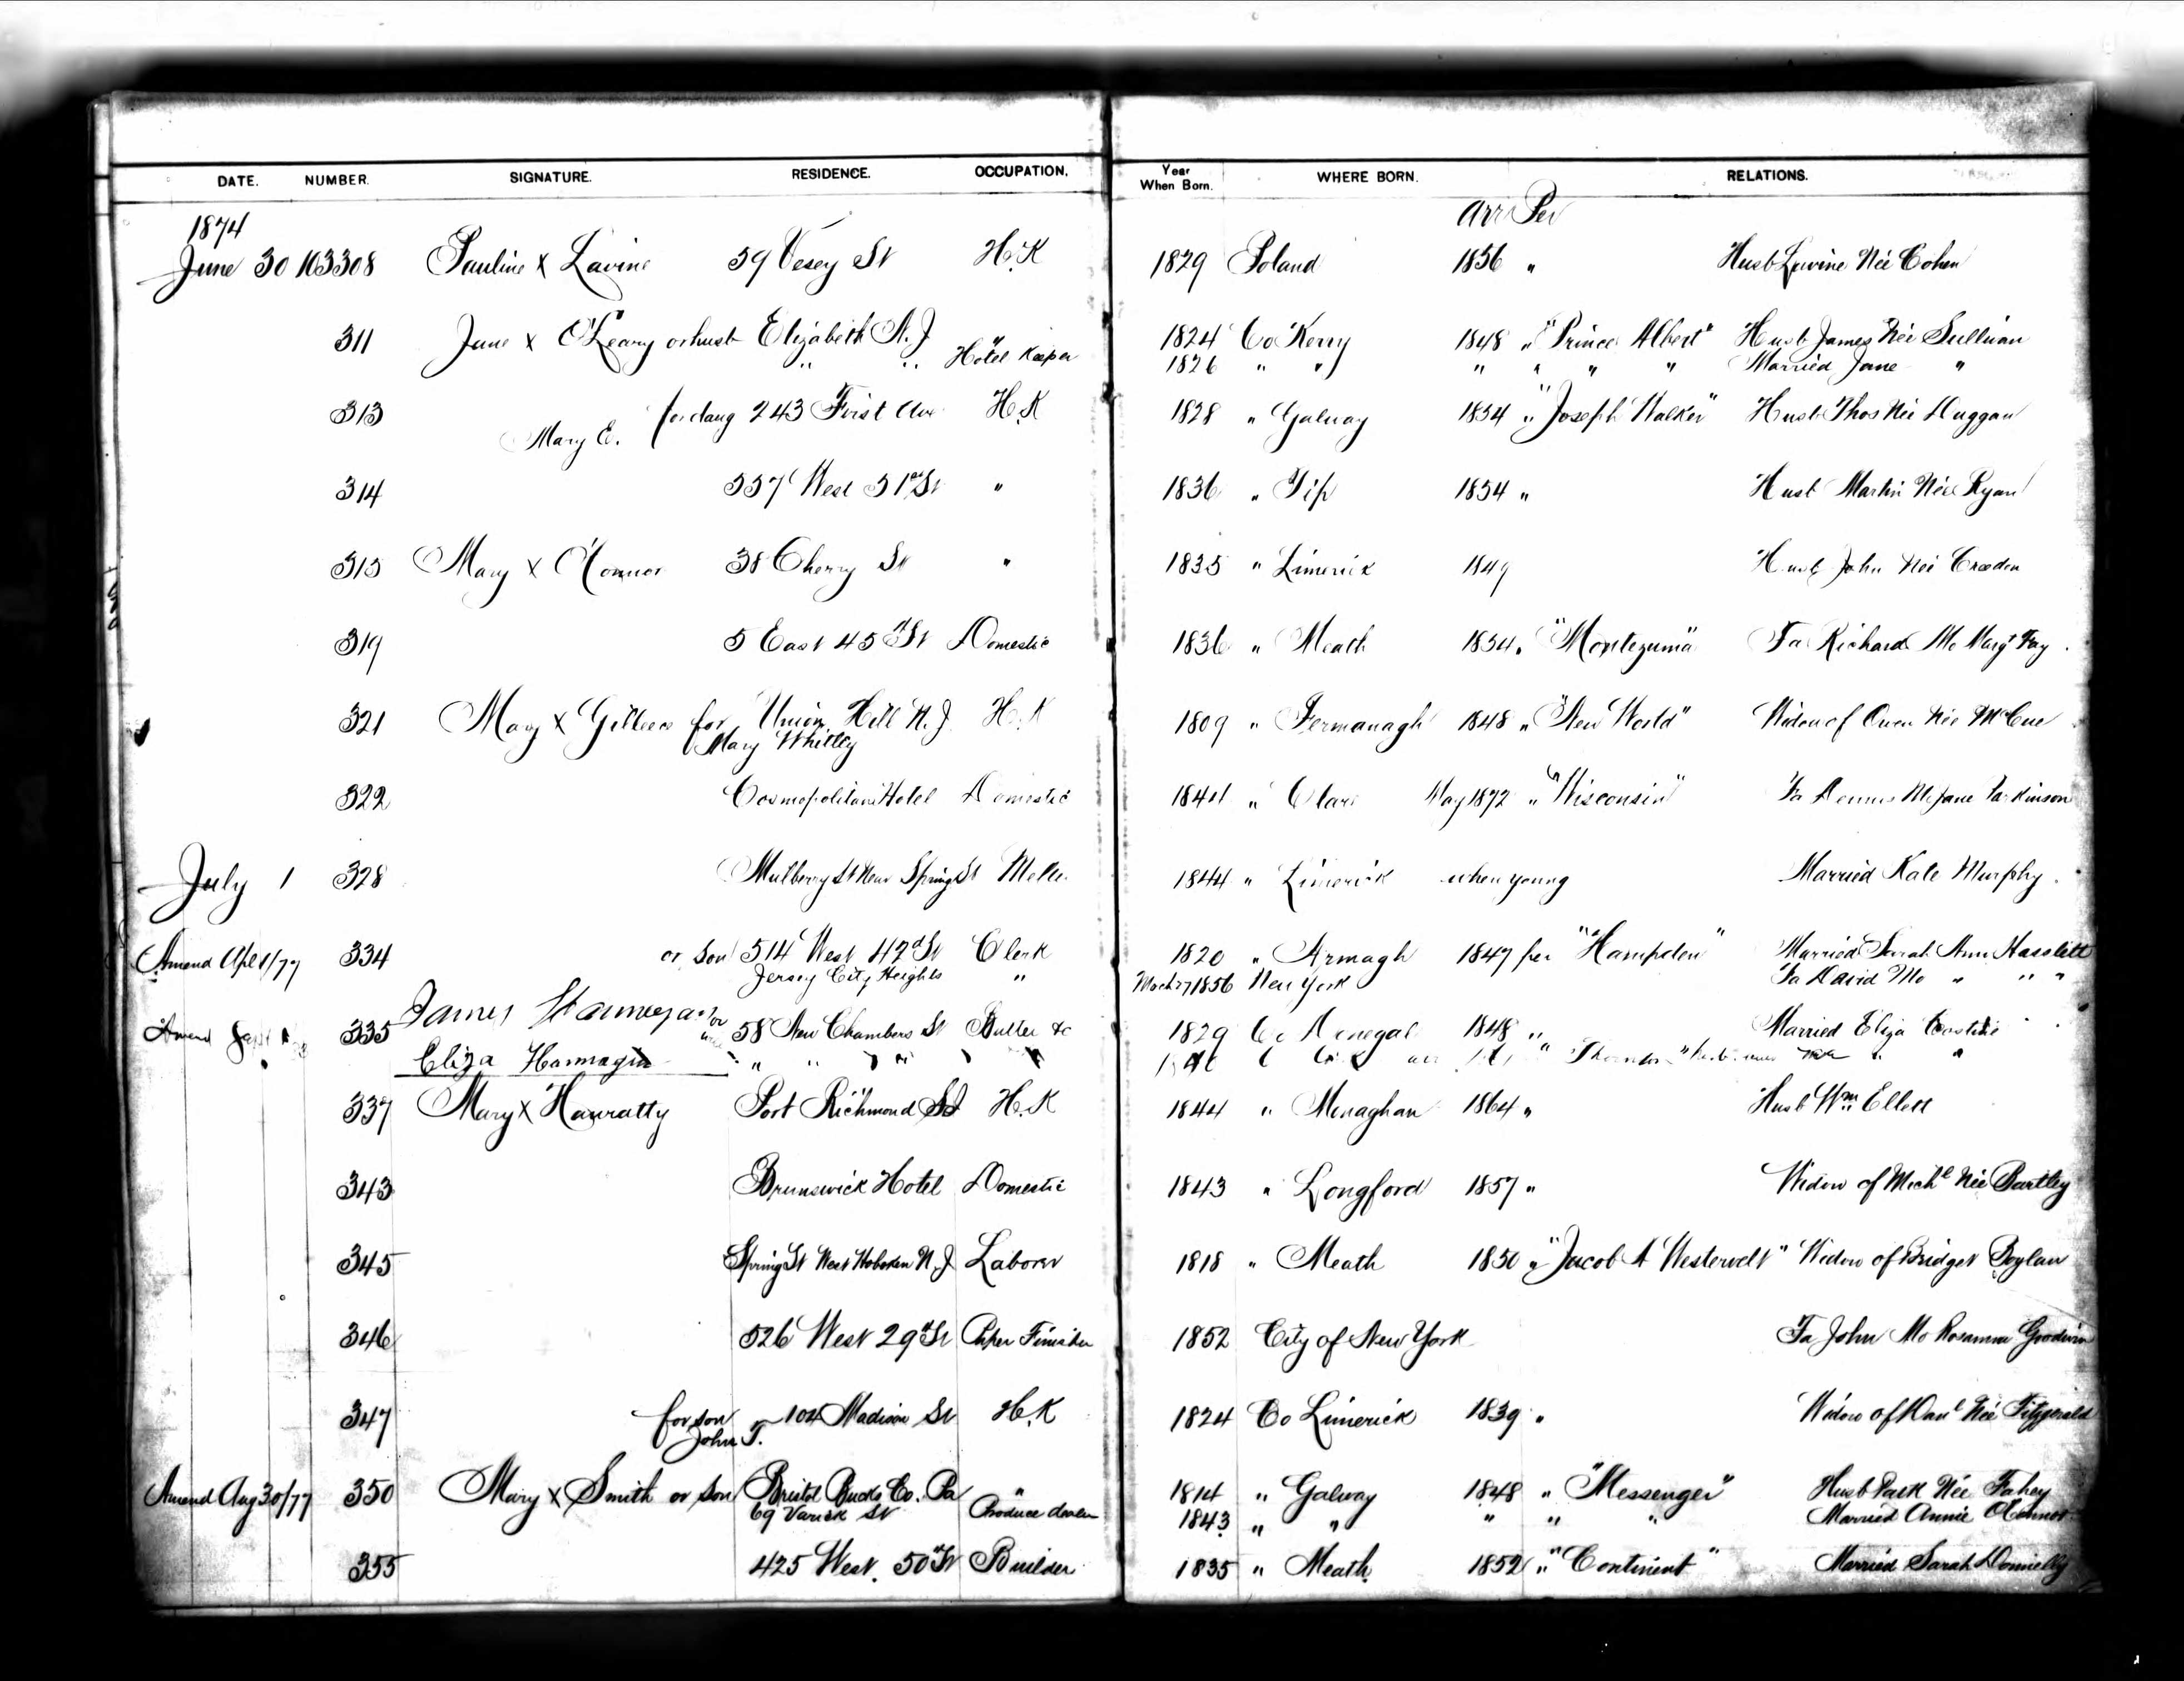 DATE. NUMBER. SIGNATURE. RESIDENCE. OCCUPATION. Year When Born. WHERE BORN. RELATIONS.
1874 Arr Per
June 30 103308 Pauline X Lavine 59 Vesey St H.K 1829 Poland 1856 " Husb Levine Née Cohen
311 Jane X O'Leary or husb Elizabeth N.J " 1824 Co Kerry 1848 " "Prince Albert" Husb James Née Sullivan
" " Hotel Keeper 1826 " " " " " " Married Jane "
313 Mary E. for daug 243 First Ave H.K 1828 " Galway 1854 " "Joseph Walker" Husb Thos Née Duggan
314 557 West 51st St " 1836 " Tip 1854 " Husb Martin Née Ryan
315 Mary X O'Connor 38 Cherry St " 1835 " Limerick 1849 Husb John Née Creedon
319 5 East 45th St Domestic 1836 " Meath 1854 " "Montezuma" Fa Richard Mo Margt Fay
321 Mary X Gilleece for Union Hill N.J H.K 1809 " Fermanagh 1848 " "New World" Widow of Owen Née McCue
Mary Whitley
322 Cosmopolitan Hotel Domestic 1844 " Clare May 1872 " "Wisconsin" Fa Dennis Mo Jane Parkinson
July 1 328 Mulberry St Near Spring St 1844 " Limerick when young Married Kate Murphy
Amend Apl 1/77 334 or son 514 West 42d St Clerk 1820 " Armagh 1847 per "Hampden" Married Sarah Ann Hasslett
Jersey City Heights " March 27 1856 New York Fa David Mo " " "
Amend 335 James Hannegan or 58 New Chambers St Butler &c 1829 Co Donegal 1848 " Married Eliza
Eliza Hannagin " " " "
337 Mary X Hanratty Port Richmond SI H.K 1844 " Monaghan 1864 " Husb Wm Ellett
343 Brunswick Hotel Domestic 1843 " Longford 1857 " Widow of Michl Née Bartley
345 Spring St West Hoboken N.J Laborer 1818 " Meath 1850 " "Jacob A Westervelt" Widow of Bridget Boylan
346 526 West 29th St Paper Finisher 1852 City of New York Fa John Mo Rosanna Goodwin
347 for son 104 Madison St H.K 1824 Co Limerick 1839 " Widow of Danl Née Fitzgerald
John T.
Amend Aug 30/77 350 Mary X Smith or son Bristol Bucks Co. Pa " 1814 " Galway 1848 " "Messenger" Husb Patk Née Fahey
69 Varick St Produce dealer 1843 " " " " " Married Annie O'Connor
355 425 West 50th St Builder 1835 " Meath 1852 " "Continent" Married Sarah Donnelly